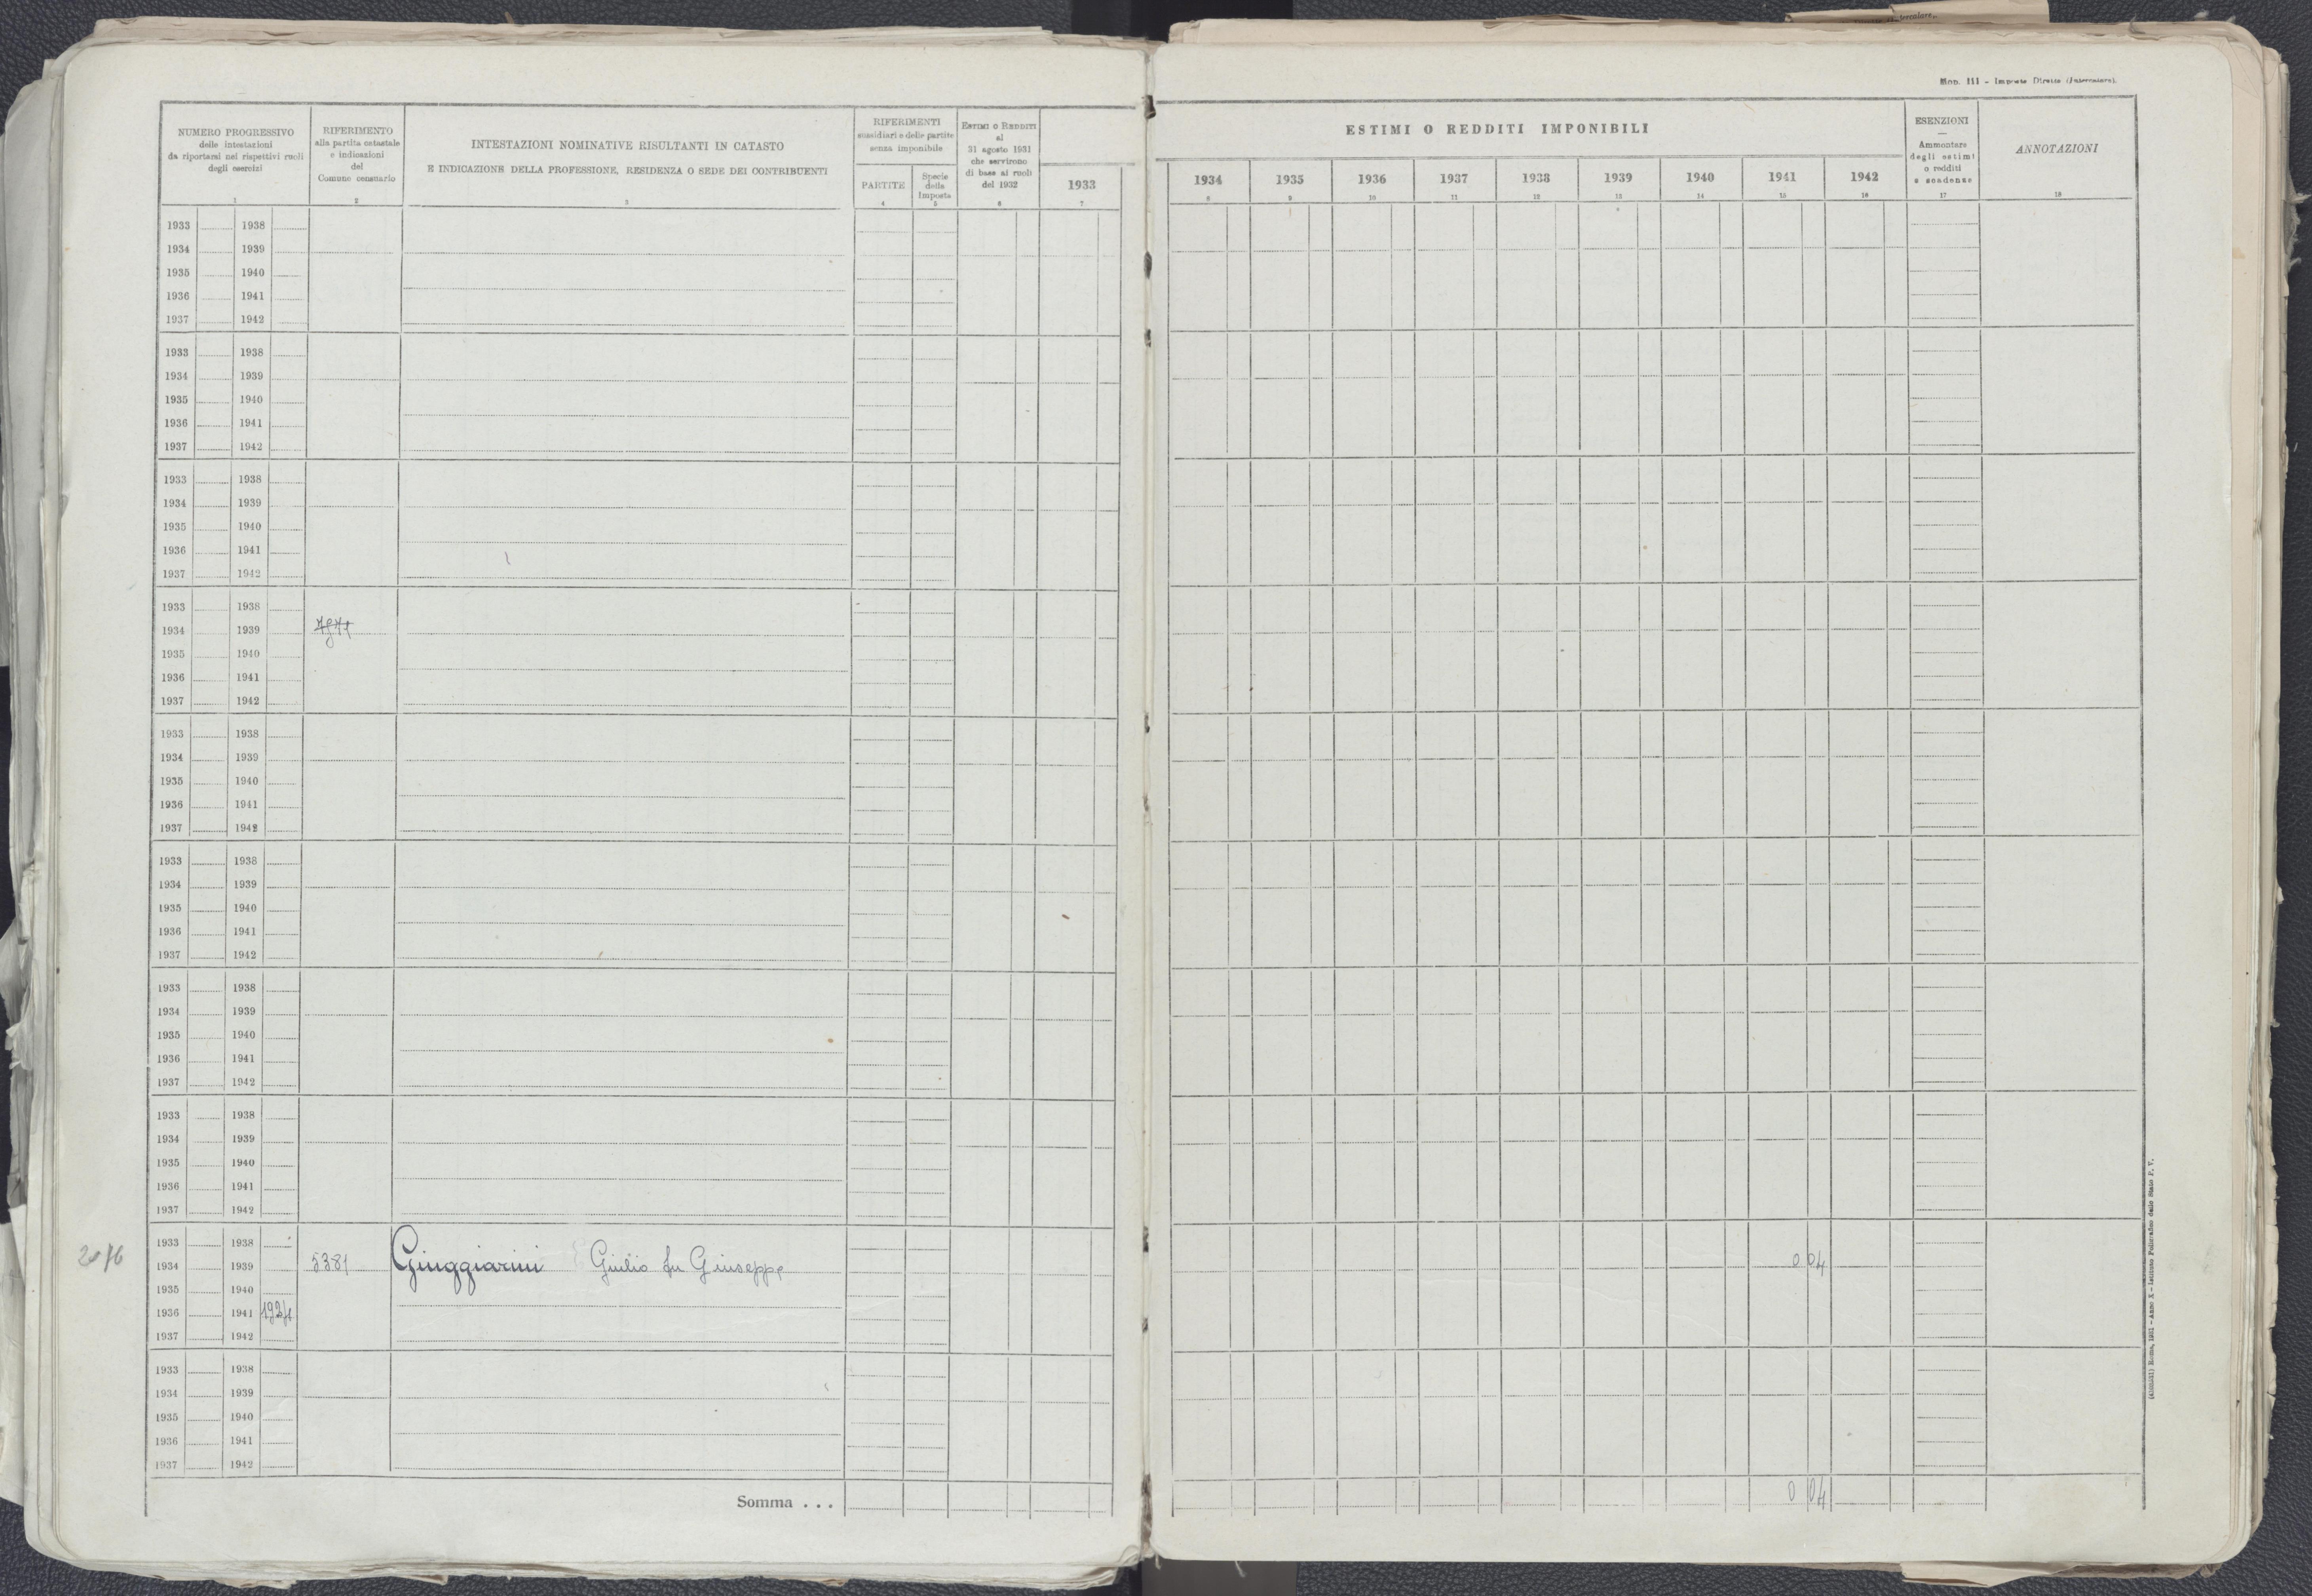 Mod. 111 - Imposte Dirette (Intercalare).
NUMERO PROGRESSIVO
delle intestazioni
da riportarsi nei rispettivi ruoli
degli esercizi
1
RIFERIMENTO
alla partita catastale
e indicazioni
del
Comune censuario
2
INTESTAZIONI NOMINATIVE RISULTANTI IN CATASTO
E INDICAZIONE DELLA PROFESSIONE, RESIDENZA O SEDE DEI CONTRIBUENTI
3
RIFERIMENTI
sussidiari e delle partite
senza imponibile
PARTITE
4
Specie
della
Imposta
5
ESTIMI O REDDITI
al
31 agosto 1931
che servirono
di base ai ruoli
del 1932
6
1933
7
ESTIMI O REDDITI IMPONIBILI
1934 1935 1936 1937 1938 1939 1940 1941 1942
8 9 10 11 12 13 14 15 16
ESENZIONI
—
Ammontare
degli estimi
o redditi
e scadenze
17
ANNOTAZIONI
18
1933 1938
1934 1939
1935 1940
1936 1941
1937 1942
1933 1938
1934 1939
1935 1940
1936 1941
1937 1942
1933 1938
1934 1939
1935 1940
1936 1941
1937 1942
1933 1938
1934 1939
1935 1940
1936 1941
1937 1942
1933 1938
1934 1939
1935 1940
1936 1941
1937 1942
1933 1938
1934 1939
1935 1940
1936 1941
1937 1942
1933 1938
1934 1939
1935 1940
1936 1941
1937 1942
1933 1938
1934 1939
1935 1940
1936 1941
1937 1942
1933 1938
1934 1939 5381 Giuggiarini Giulio fu Giuseppe 0 04
1935 1940
1936 1941 1924
1937 1942
1933 1938
1934 1939
1935 1940
1936 1941
1937 1942
Somma . . . 0 04
Roma, 1931 - Anno X - Istituto Poligrafico dello Stato P. V.